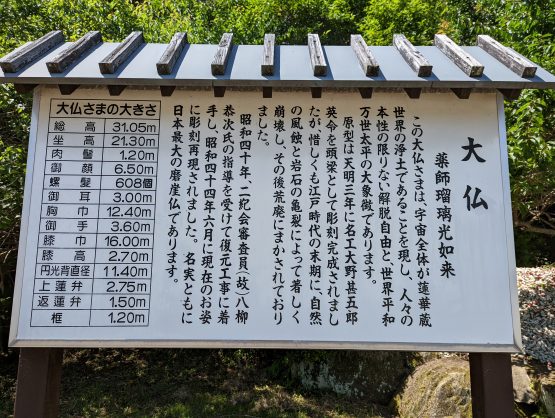 大仏
薬師瑠璃光如来
この大仏さまは、宇宙全体が蓮華蔵
世界の浄土であることを現し、人々の
本性の限りない解脱自由と、世界平和
万世太平の大象徴であります。
原型は天明三年に名工大野甚五郎
英令を頭梁として彫刻完成されまし
たが惜しくも江戸時代の末期に、自然
の風蝕と岩石の亀裂によって著しく
崩壊し、その後荒廃にまかされており
ました。
昭和四十年、二紀会審査員（故）八柳
恭次氏の指導を受けて復元工事に着
手し、昭和四十四年六月に現在のお姿
に彫刻再現されました。名実ともに
日本最大の磨崖仏であります。
大仏さまの大きさ
総高 31.05m
坐高 21.30m
肉髻 1.20m
御顔 6.50m
螺髪 608個
御耳 3.00m
胸巾 12.40m
御手 3.60m
膝巾 16.00m
膝高 2.70m
円光背直径 11.40m
上蓮弁 2.75m
返蓮弁 1.50m
框 1.20m